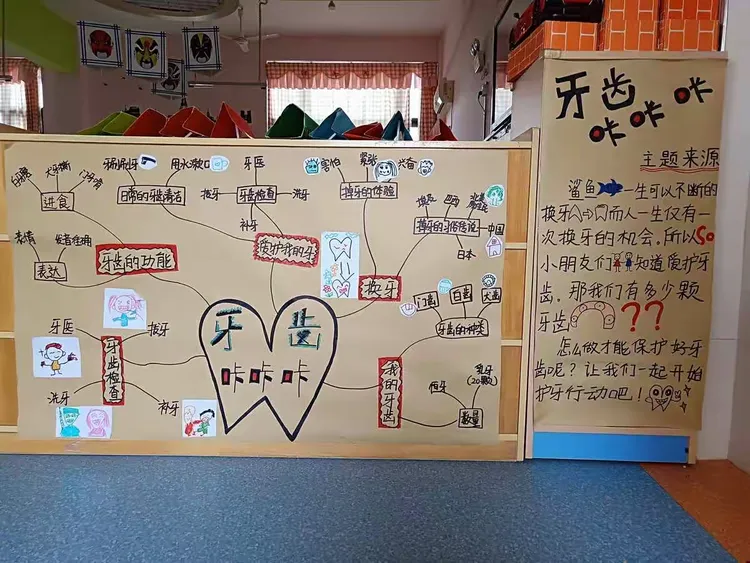 牙齿
咔咔咔
牙齿的功能
进食
白磨
犬牙撕
门牙啃
表达
表情
发音准确
爱护我的牙
日常的牙齿清洁
早晚刷牙
用水漱口
牙齿检查
牙医
拔牙
洗牙
补牙
换牙
掉牙的体验
害怕
紧张
兴奋
掉牙的习俗传说
巴西
中国
日本
我的牙齿
牙齿的种类
门齿
臼齿
犬齿
数量
恒牙
乳牙
(20颗)
牙齿检查
牙医
拔牙
洗牙
补牙
牙齿
咔咔咔
主题来源
鲨鱼一生可以不断的
换牙而人一生仅有一
次换牙的机会,所以So
小朋友们知道爱护牙
齿,那我们有多少颗
牙齿??
怎么做才能保护好牙
齿呢?让我们一起开始
护牙行动吧!